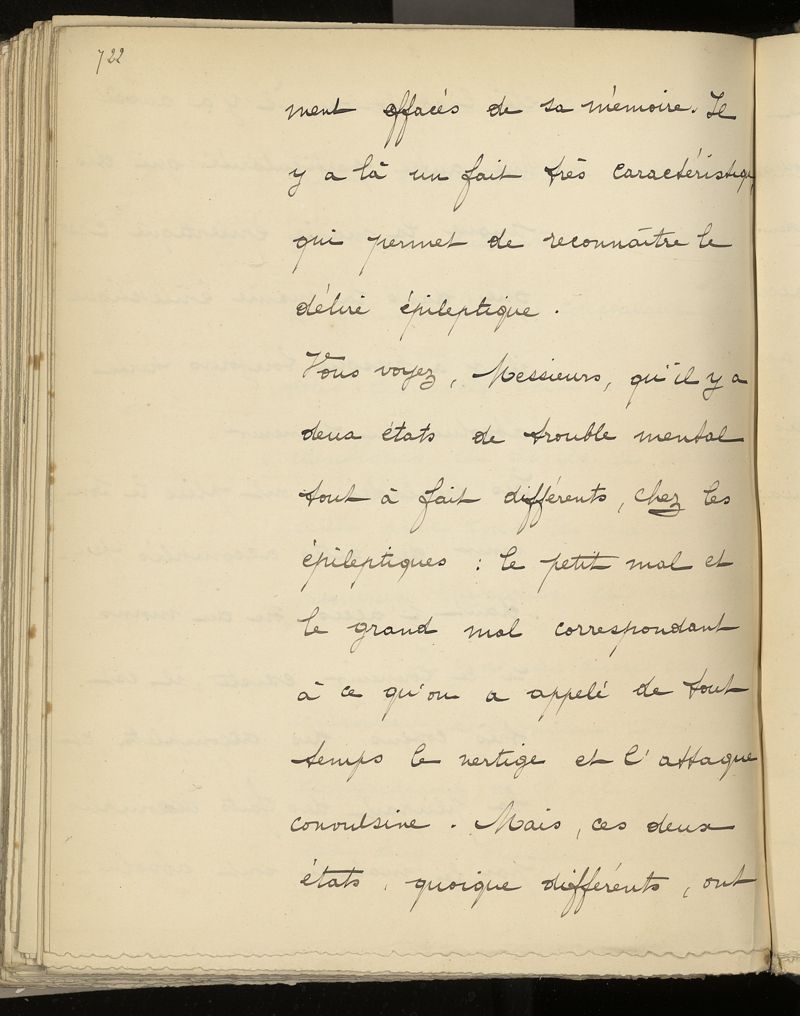 722
ment effacés de sa mémoire. Il
y a là un fait très caractéristique
qui permet de reconnaître le
délire épileptique.
Vous voyez, Messieurs, qu'il y a
deux états de trouble mental
tout à fait différents, chez les
épileptiques : le petit mal et
le grand mal correspondant
à ce qu'on a appelé de tout
temps le vertige et l'attaque
convulsive. Mais, ces deux
états, quoique différents, ont